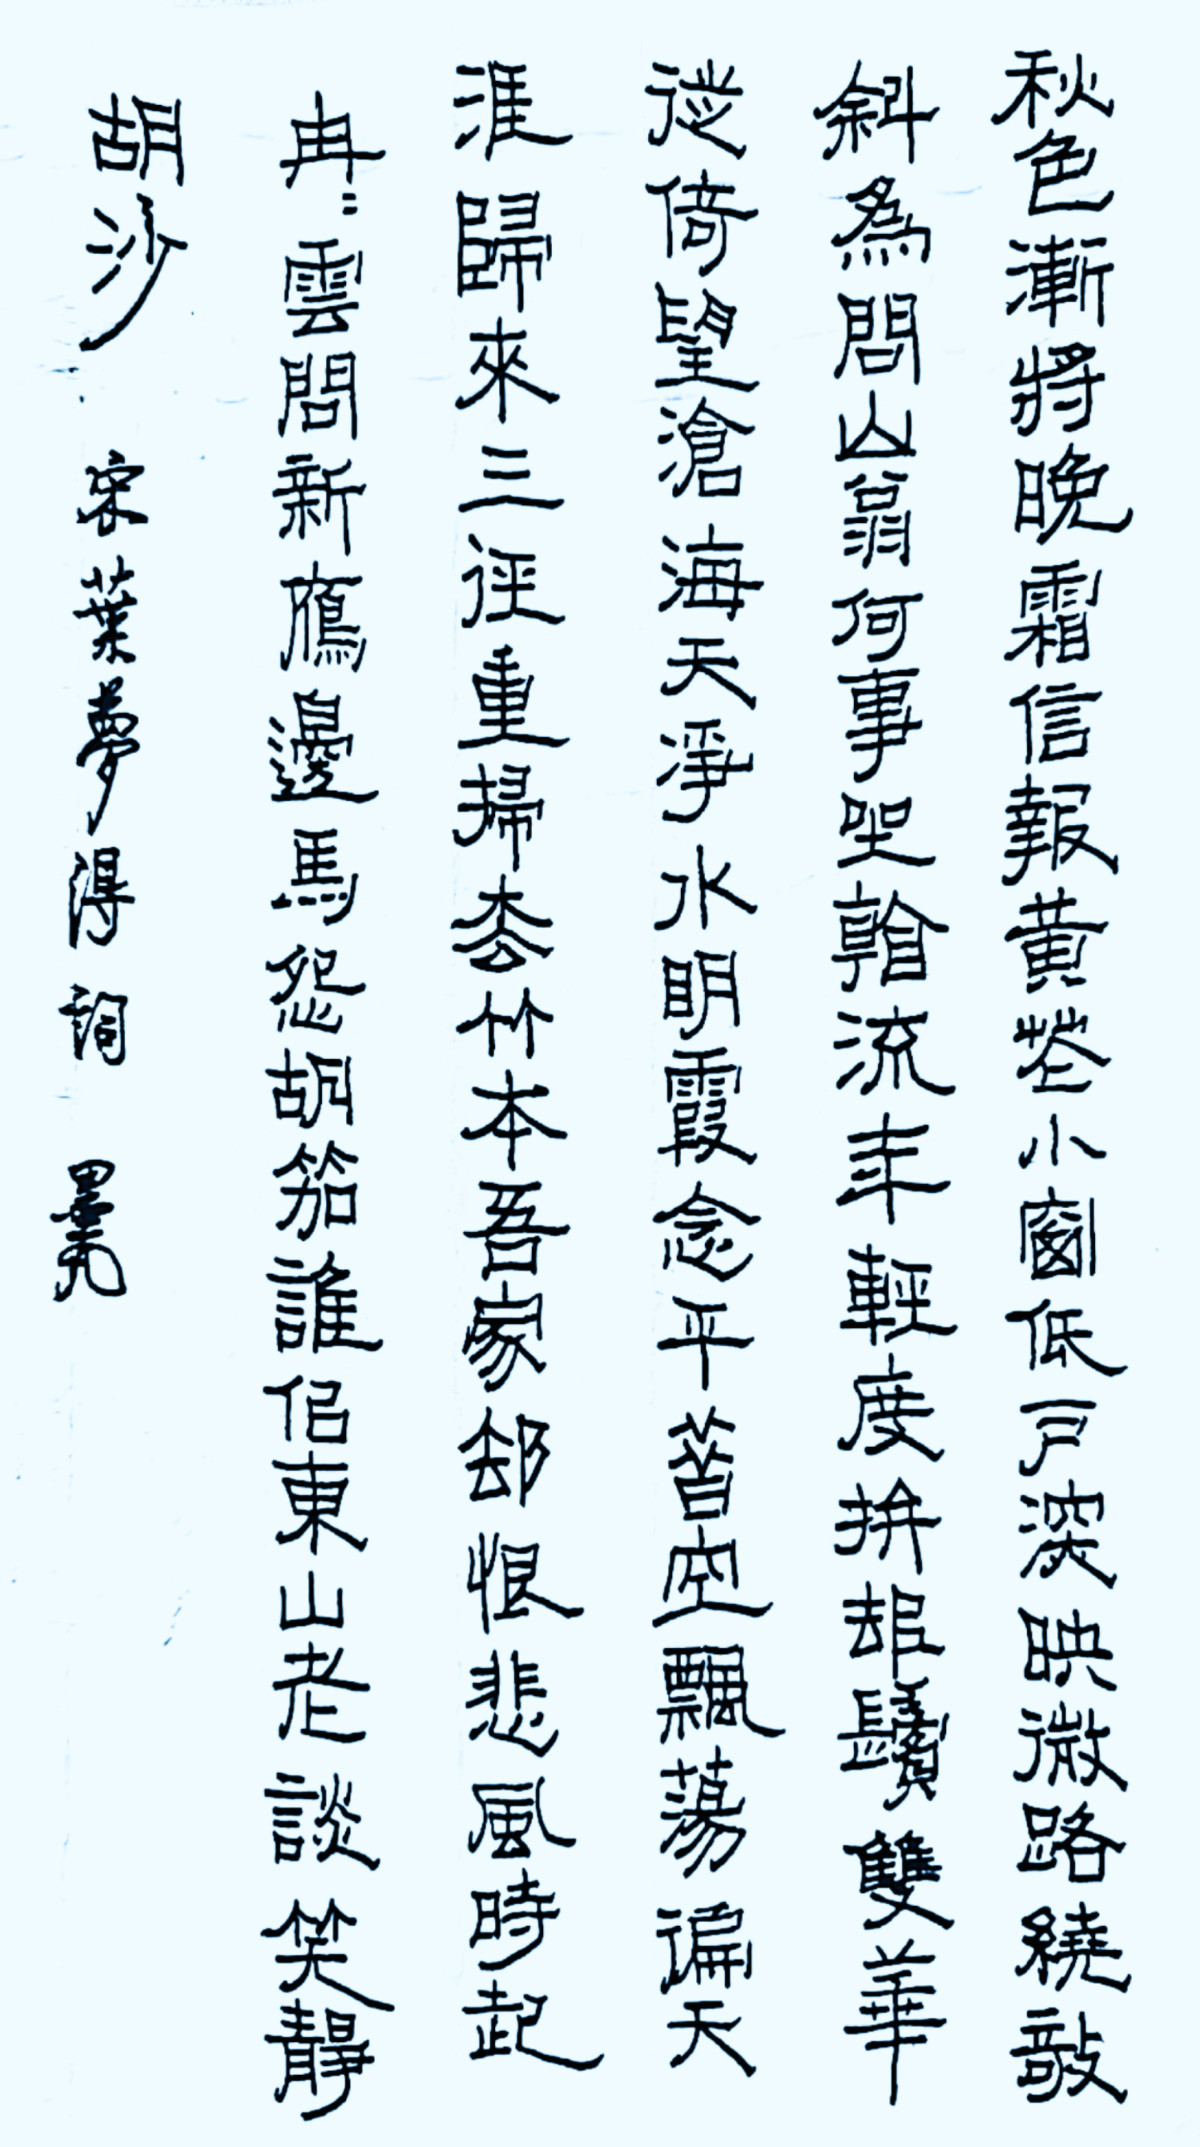 秋色漸將晚霜信報黃花小窗低戶深映微路繞敧
斜為問山翁何事坐看流年輕度拚卻鬢雙華
徙倚望滄海天淨水明霞念平昔空飄蕩徧天
涯歸來三徑重掃松竹本吾家卻恨悲風時起
冉〻雲間新鴈邊馬怨胡笳誰佀東山老談笑靜
胡沙 宋葉夢得詞